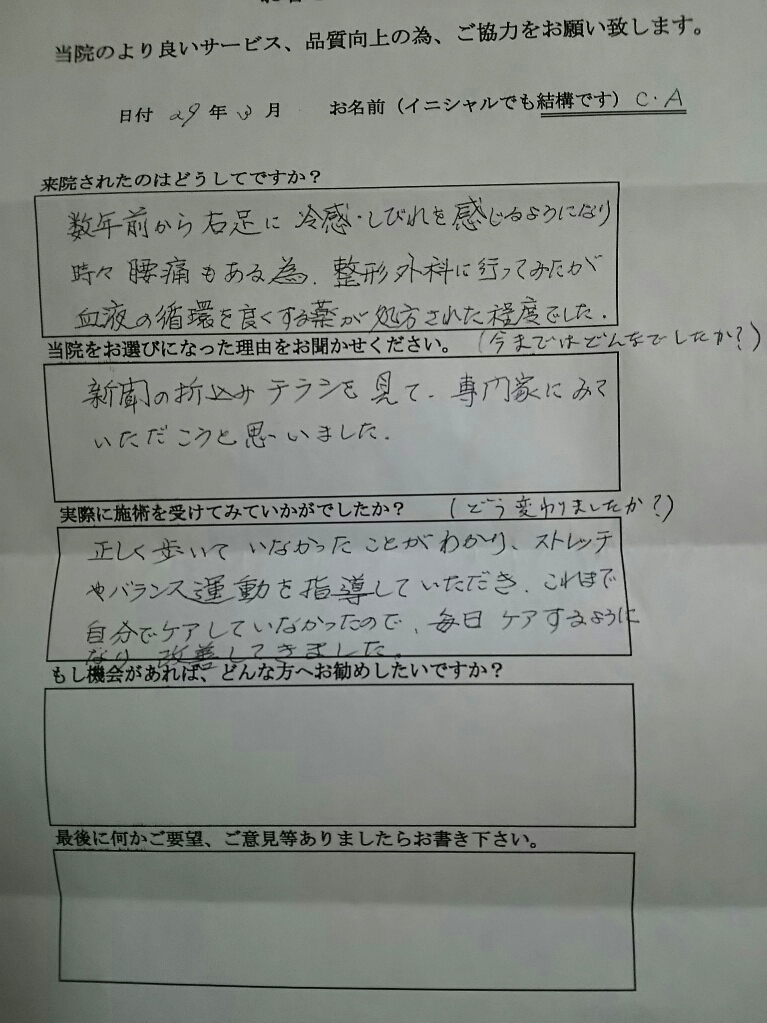 当院のより良いサービス、品質向上の為、ご協力をお願い致します。
日付 29 年 3 月 お名前（イニシャルでも結構です） C・A
来院されたのはどうしてですか？
数年前から右足に 冷感・しびれを感じるようになり
時々 腰痛もある為、整形外科に行ってみたが
血液の循環を良くする薬が処方された程度でした。
当院をお選びになった理由をお聞かせください。（今まではどんなでしたか？）
新聞の折込みチラシを見て、専門家にみて
いただこうと思いました。
実際に施術を受けてみていかがでしたか？ （どう変わりましたか？）
正しく歩いていなかったことがわかり、ストレッチ
やバランス運動を指導していただき、これまで
自分でケアしていなかったので、毎日ケアするように
なり 改善してきました。
もし機会があれば、どんな方へお勧めしたいですか？
最後に何かご要望、ご意見等ありましたらお書き下さい。